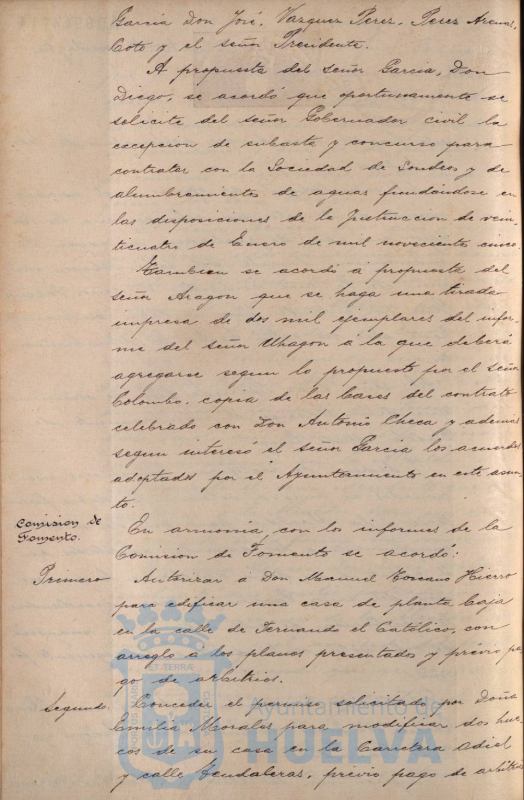 Garcia Don José, Vazquez Perez, Perez
Coto y el señor Presidente.
A propuesta del señor Garcia, Don
Diego, se acordó que oportunamente se
solicite del señor Gobernador civil la
excepcion de subasta y concurso para
contratar con la Sociedad de Sondeos y de
alumbramientos de aguas fundándose en
las disposiciones de la Instruccion de vein-
ticuatro de Enero de mil novecientos cinco.
Tambien se acordó á propuesta del
señor Aragon que se haga una tirada
impresa de dos mil ejemplares del infor-
me del señor Uhagon á la que deberá
agregarse segun lo propuesto por el señor
Colombo, copia de las bases del contrato
celebrado con Don Antonio Checa y ademas
segun interesó el señor Garcia los acuerdos
adoptados por el Ayuntamiento en este asun-
to.
Comision de
Fomento.
En armonia con los informes de la
Comision de Fomento se acordó:
Primero Autorizar á Don Manuel Toscano Hierro
para edificar una casa de planta baja
en la calle de Fernando el Católico, con
arreglo á los planos presentados y prévio pa-
go de arbitrios.
Segundo. Conceder el permiso solicitado por Doña
Emilia Morales para modificar dos hue-
cos de su casa en la Carretera Odiel
y calle Hendaleras, previo pago de arbitrios
Ayuntamiento de
HUELVA